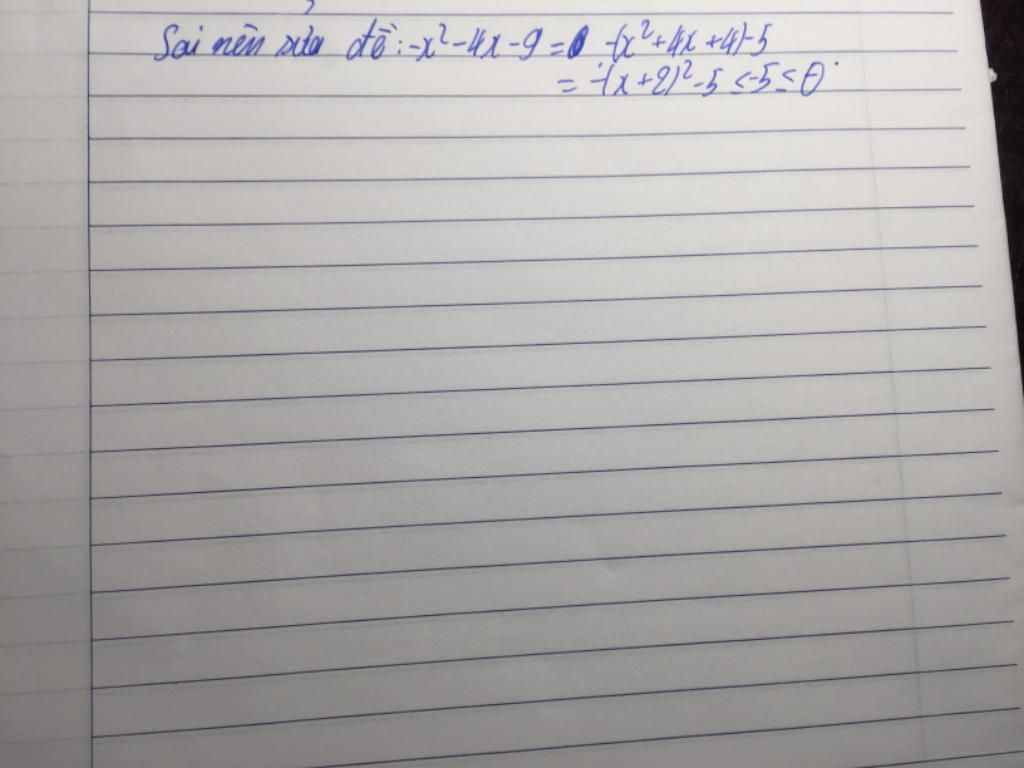 Sai nên sửa đề: -x² - 4x - 9 = -(x² + 4x + 4) - 5
= -(x + 2)² - 5 ≤ -5 ≤ 0